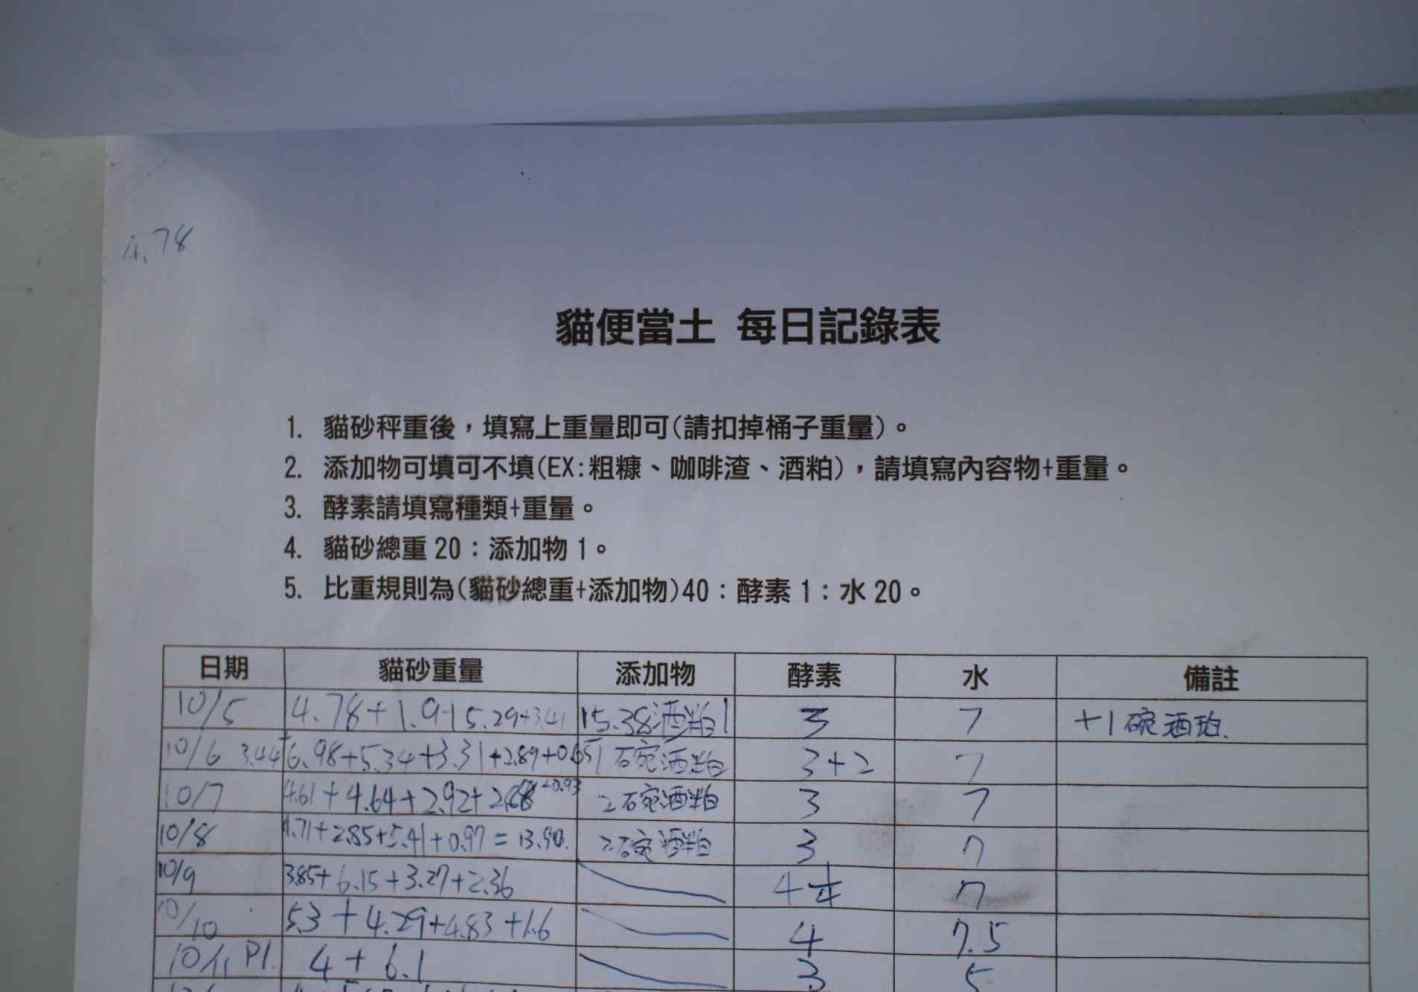 4.78
貓便當土 每日記錄表
1. 貓砂秤重後，填寫上重量即可(請扣掉桶子重量)。
2. 添加物可填可不填(EX:粗糠、咖啡渣、酒粕)，請填寫內容物+重量。
3. 酵素請填寫種類+重量。
4. 貓砂總重 20：添加物 1。
5. 比重規則為(貓砂總重+添加物)40：酵素 1：水 20。
日期 貓砂重量 添加物 酵素 水 備註
10/5 4.78+1.9+5.29+3.41 15.38酒粕1 3 7 +1碗酒粕.
10/6 3.44+6.98+5.34+3.31+2.89+0.65 1碗酒粕 3+2 7
10/7 4.61+4.64+2.92+ +0.93 2碗酒粕 3 7
10/8 4.71+2.85+5.41+0.97=13.90. 2碗酒粕 3 7
10/9 3.85+6.15+3.27+2.36 4 7
10/10 5.3+4.29+4.83+1.6 4 7.5
10/11 P1. 4+6.1 3 5